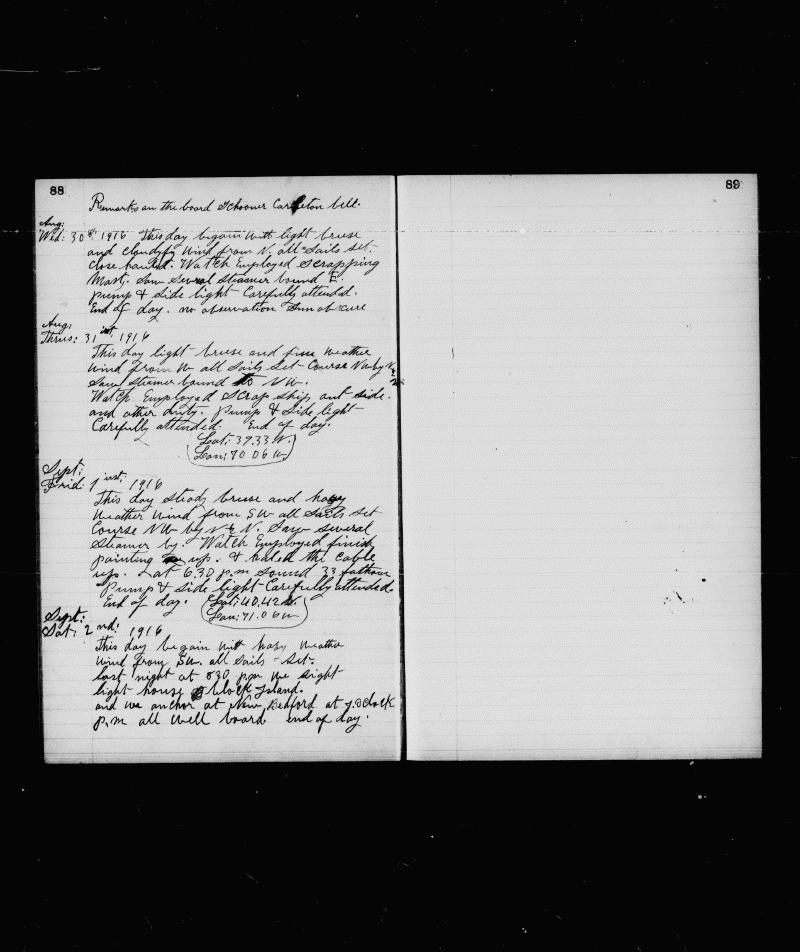 88
Remarks on the board Schooner Carleton bell.
Aug:
Wed: 30th. 1916 This day begain with light breese
and cloudy wind from N. all sails set.
Close hauled. Watch Employed Scrapping
Mast. Saw Several Steamer bound E.
pump & Side light Carefully attended.
End of day. no observation Sun obscure
Aug:
Thrus: 31 ist. 1916
This day light breese and fine Weather
Wind from W all Sails Set Course NW by N
Saw Steamer bound to NW.
Watch Employed Scrap ship out side.
and other duty. Pump & Side light
Carefully attended. End of day.
Lat: 39.33 N.
Lon: 70 06 W
Sept:
Frid: 1 ist. 1916
This day Steady breese and hazy
Weather Wind from SW all Sails Set
Course NW by N & N. Saw several
Steamer by. Watch Employed finish
painting up. & haled the Cable
up. at 6.30 p.m Sound 33 fathom
Pump & Side light Carefully attended.
End of day. Lat: 40.42 N.
Lon: 71.06 W
Sept:
Sat: 2 nd: 1916
This day begain with hazy Weather
Wind from SW. all Sails Set.
last night at 830 p.m We Sight
light house block Island.
and we anchor at New Bedford at 7.O Clock
p.m all Well board end of day.
89